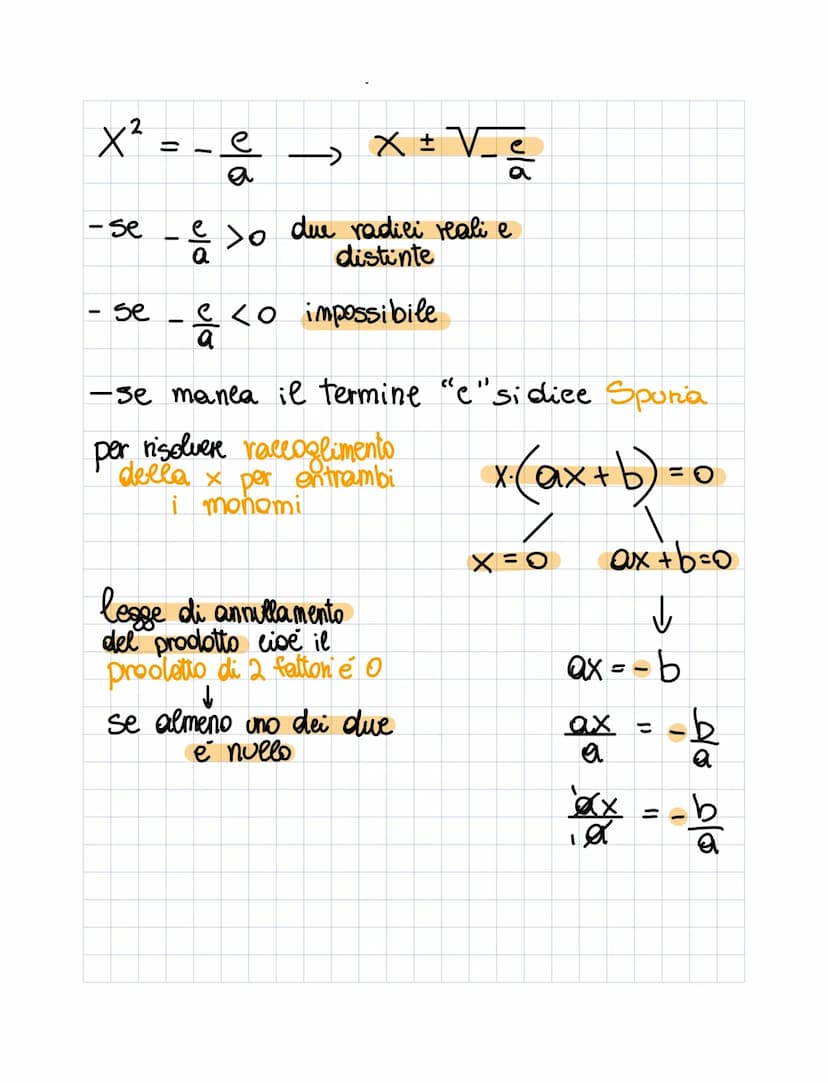 x² = - c/a → x ± √- c/a
- se - c/a > 0 due radici reali e
distinte
- se - c/a < 0 impossibile
- se manca il termine "c" si dice Spuria
per risolvere raccoglimento
della x per entrambi
i monomi
x·(ax+b) = 0
x = 0 ax+b=0
legge di annullamento
del prodotto cioé il
prodotto di 2 fattori é 0
↓
se almeno uno dei due
é nullo
↓
ax = - b
ax/a = - b/a
1ax/1a = - b/a